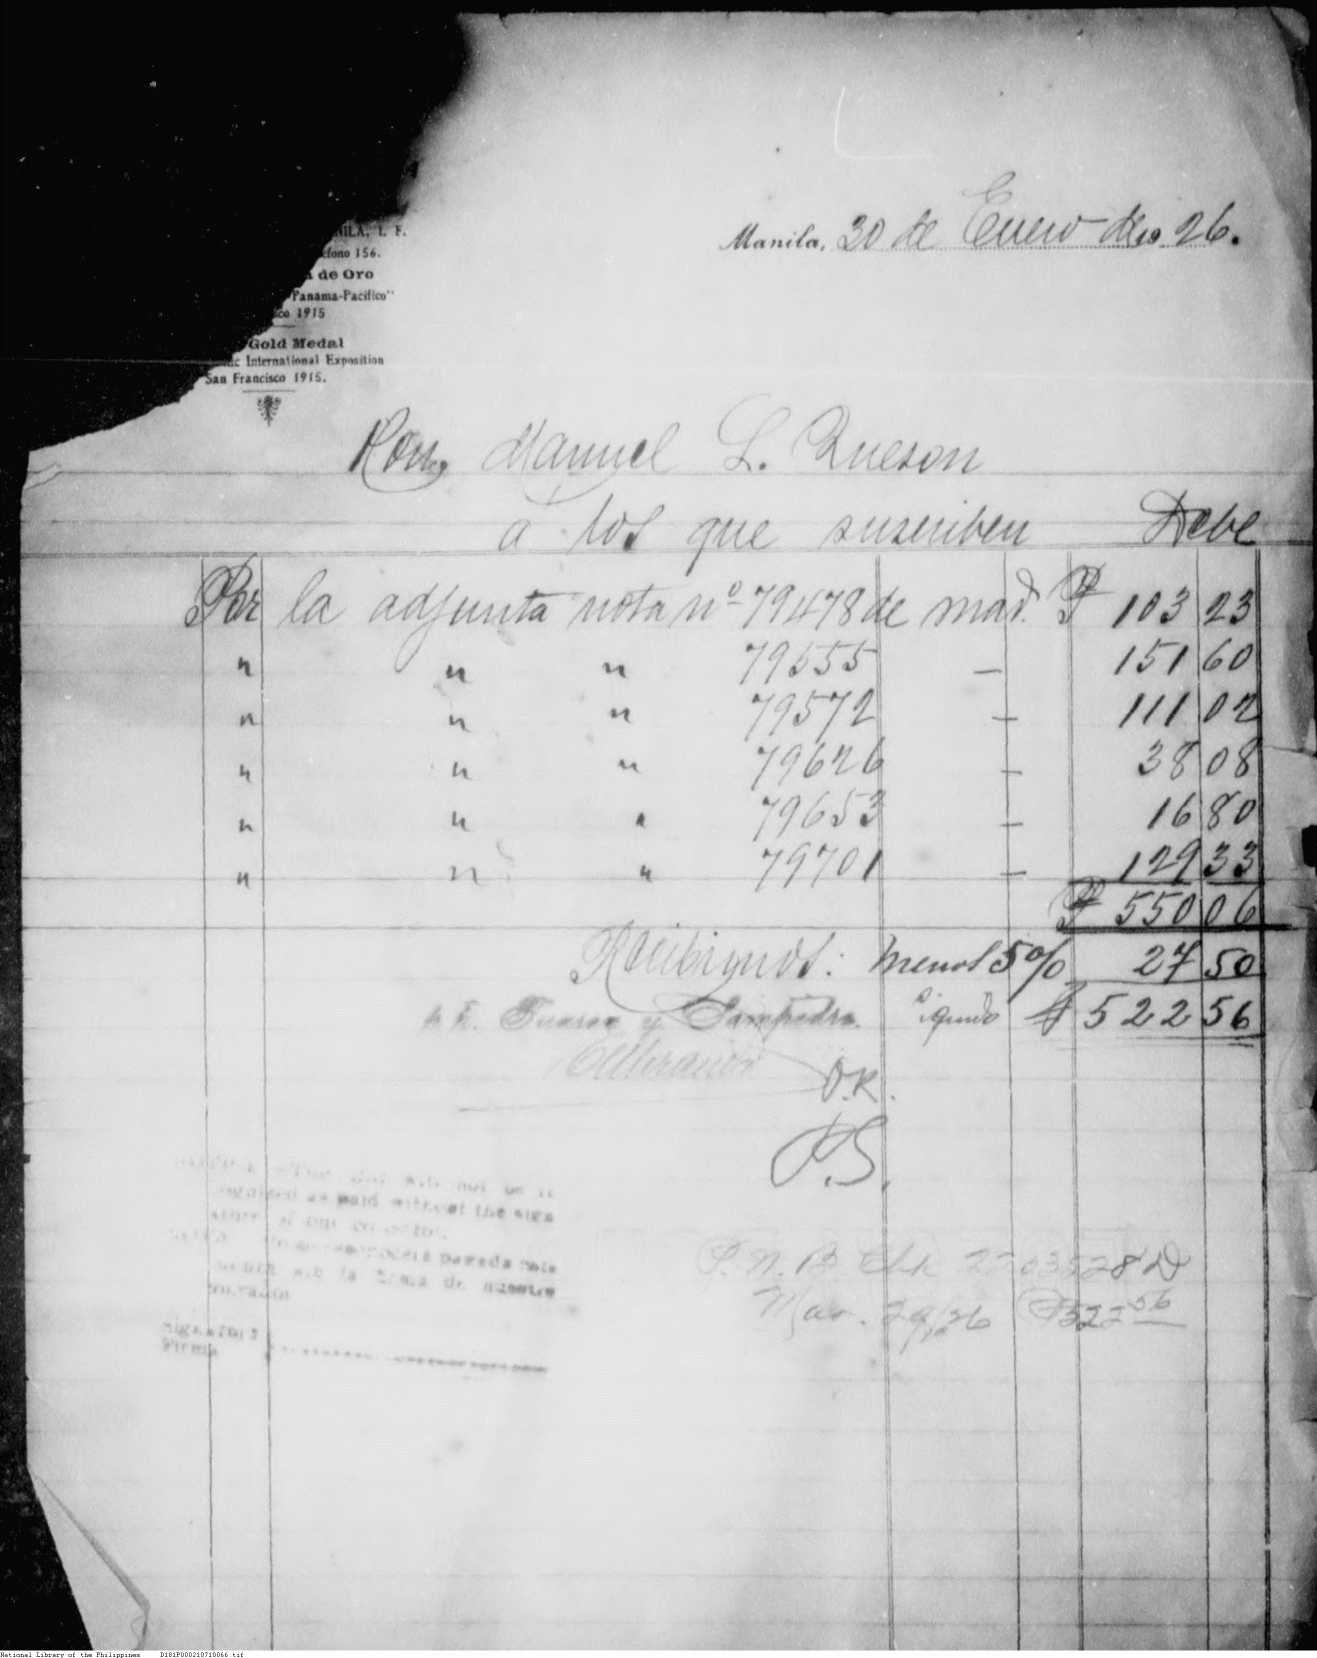 NILA, I. F.
éfono 156.
de Oro
Panama-Pacifico"
co 1915
Gold Medal
ic International Exposition
San Francisco 1915.
Manila, 30 de Enero de 19 26.
Hon. Manuel L. Quezon
a los que suscriben Debe
Por la adjunta nota nº 79478 de mad. ₱ 103 23
" " " 79555 — 151 60
" " " 79572 — 111 02
" " " 79626 — 38 08
" " " 79653 — 16 80
" " " 79701 — 129 33
₱ 550 06
Recibimos: menos 5% 27 50
p. p. Tuason y Sampedro. líquido ₱ 522 56
O.K.
P.S.
not be re
as paid without the signa
pagada
la firma de nuestro
Firma
P. N. B. Chk 2203528 D
Mar. 29/26 ₱522 56
National Library of the Philippines D181P000210710066.tif